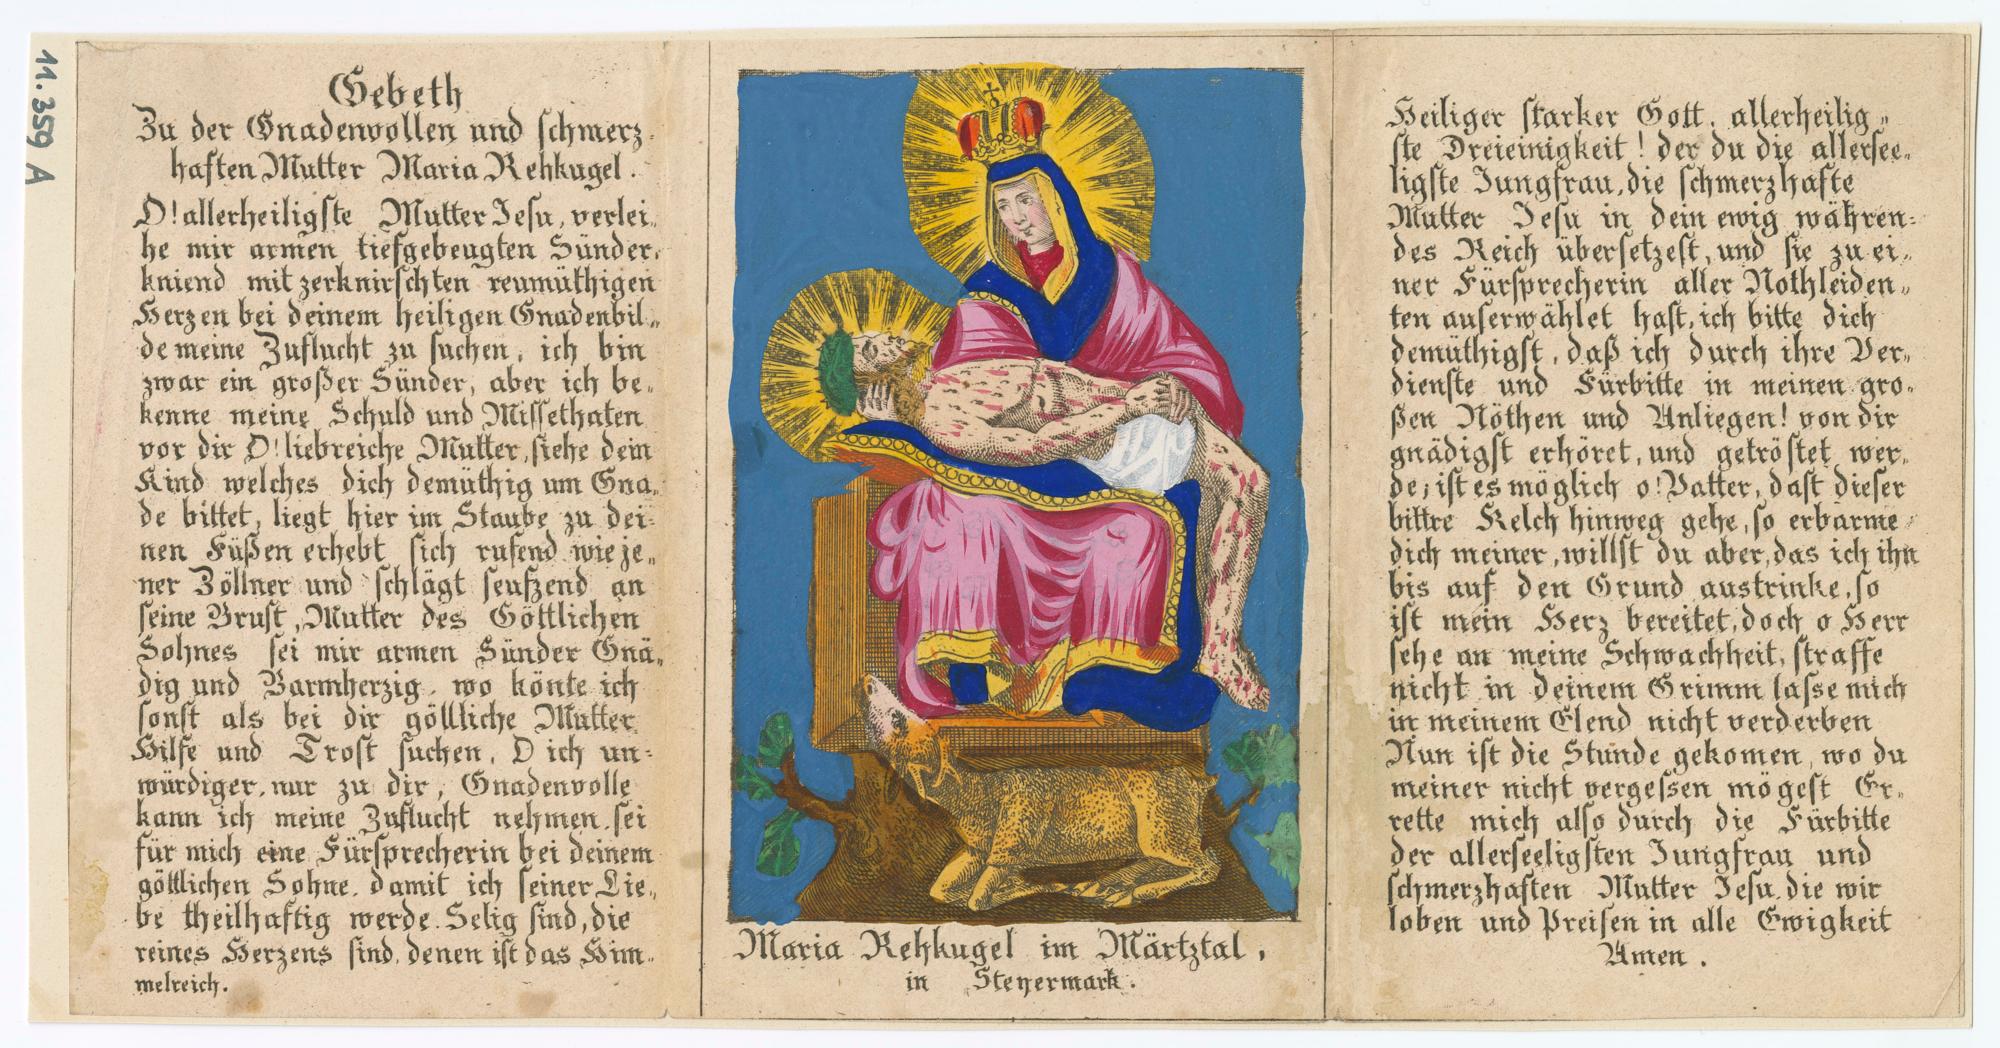 11.359 A
Gebeth
Zu der Gnadenvollen und schmerz-
haften Mutter Maria Rehkugel.
O! allerheiligste Mutter Jesu, verlei„
he mir armen tiefgebeugten Sünder,
kniend mit zerknirschten reumüthigen
Herzen bei deinem heiligen Gnadenbil„
de meine Zuflucht zu suchen, ich bin
zwar ein großer Sünder, aber ich be„
kenne meine Schuld und Missethaten
vor dir O! liebreiche Mutter, siehe dein
Kind welches dich demüthig um Gna„
de bittet, liegt hier im Staube zu dei-
nen Füßen erhebt sich rufend wie je„
ner Zöllner und schlägt seufzend an
seine Brust, Mutter des Göttlichen
Sohnes sei mir armen Sünder Gnä„
dig und Barmherzig. wo könte ich
sonst als bei dir göttliche Mutter
Hilfe und Trost suchen, O ich un-
würdiger, nur zu dir, Gnadenvolle
kann ich meine Zuflucht nehmen, sei
für mich eine Fürsprecherin bei deinem
göttlichen Sohne, damit ich seiner Lie„
be theilhaftig werde. Selig sind, die
reines Herzens sind, denen ist das Him-
melreich.
Maria Rehkugel im Märtztal,
in Steyermark.
Heiliger starker Gott, allerheilig„
ste Dreieinigkeit! der du die allersee„
ligste Jungfrau, die schmerzhafte
Mutter Jesu in dein ewig währen-
des Reich übersetzest, und sie zu ei„
ner Fürsprecherin aller Nothleiden„
ten auserwählet hast, ich bitte dich
demüthigst, daß ich durch ihre Ver„
dienste und Fürbitte in meinen gro„
ßen Nöthen und Anliegen! von dir
gnädigst erhöret, und getröstet wer„
de, ist es möglich o! Vatter, dast dieser
bittre Kelch hinweg gehe, so erbarme
dich meiner, willst du aber, das ich ihn
bis auf den Grund austrinke, so
ist mein Herz bereitet, doch o Herr
sehe an meine Schwachheit, straffe
nicht in deinem Grimm lasse mich
in meinem Elend nicht verderben
Nun ist die Stunde gekomen, wo du
meiner nicht vergessen mögest Er„
rette mich also durch die Fürbitte
der allerseeligsten Jungfrau und
schmerzhaften Mutter Jesu, die wir
loben und Preisen in alle Ewigkeit
Amen.